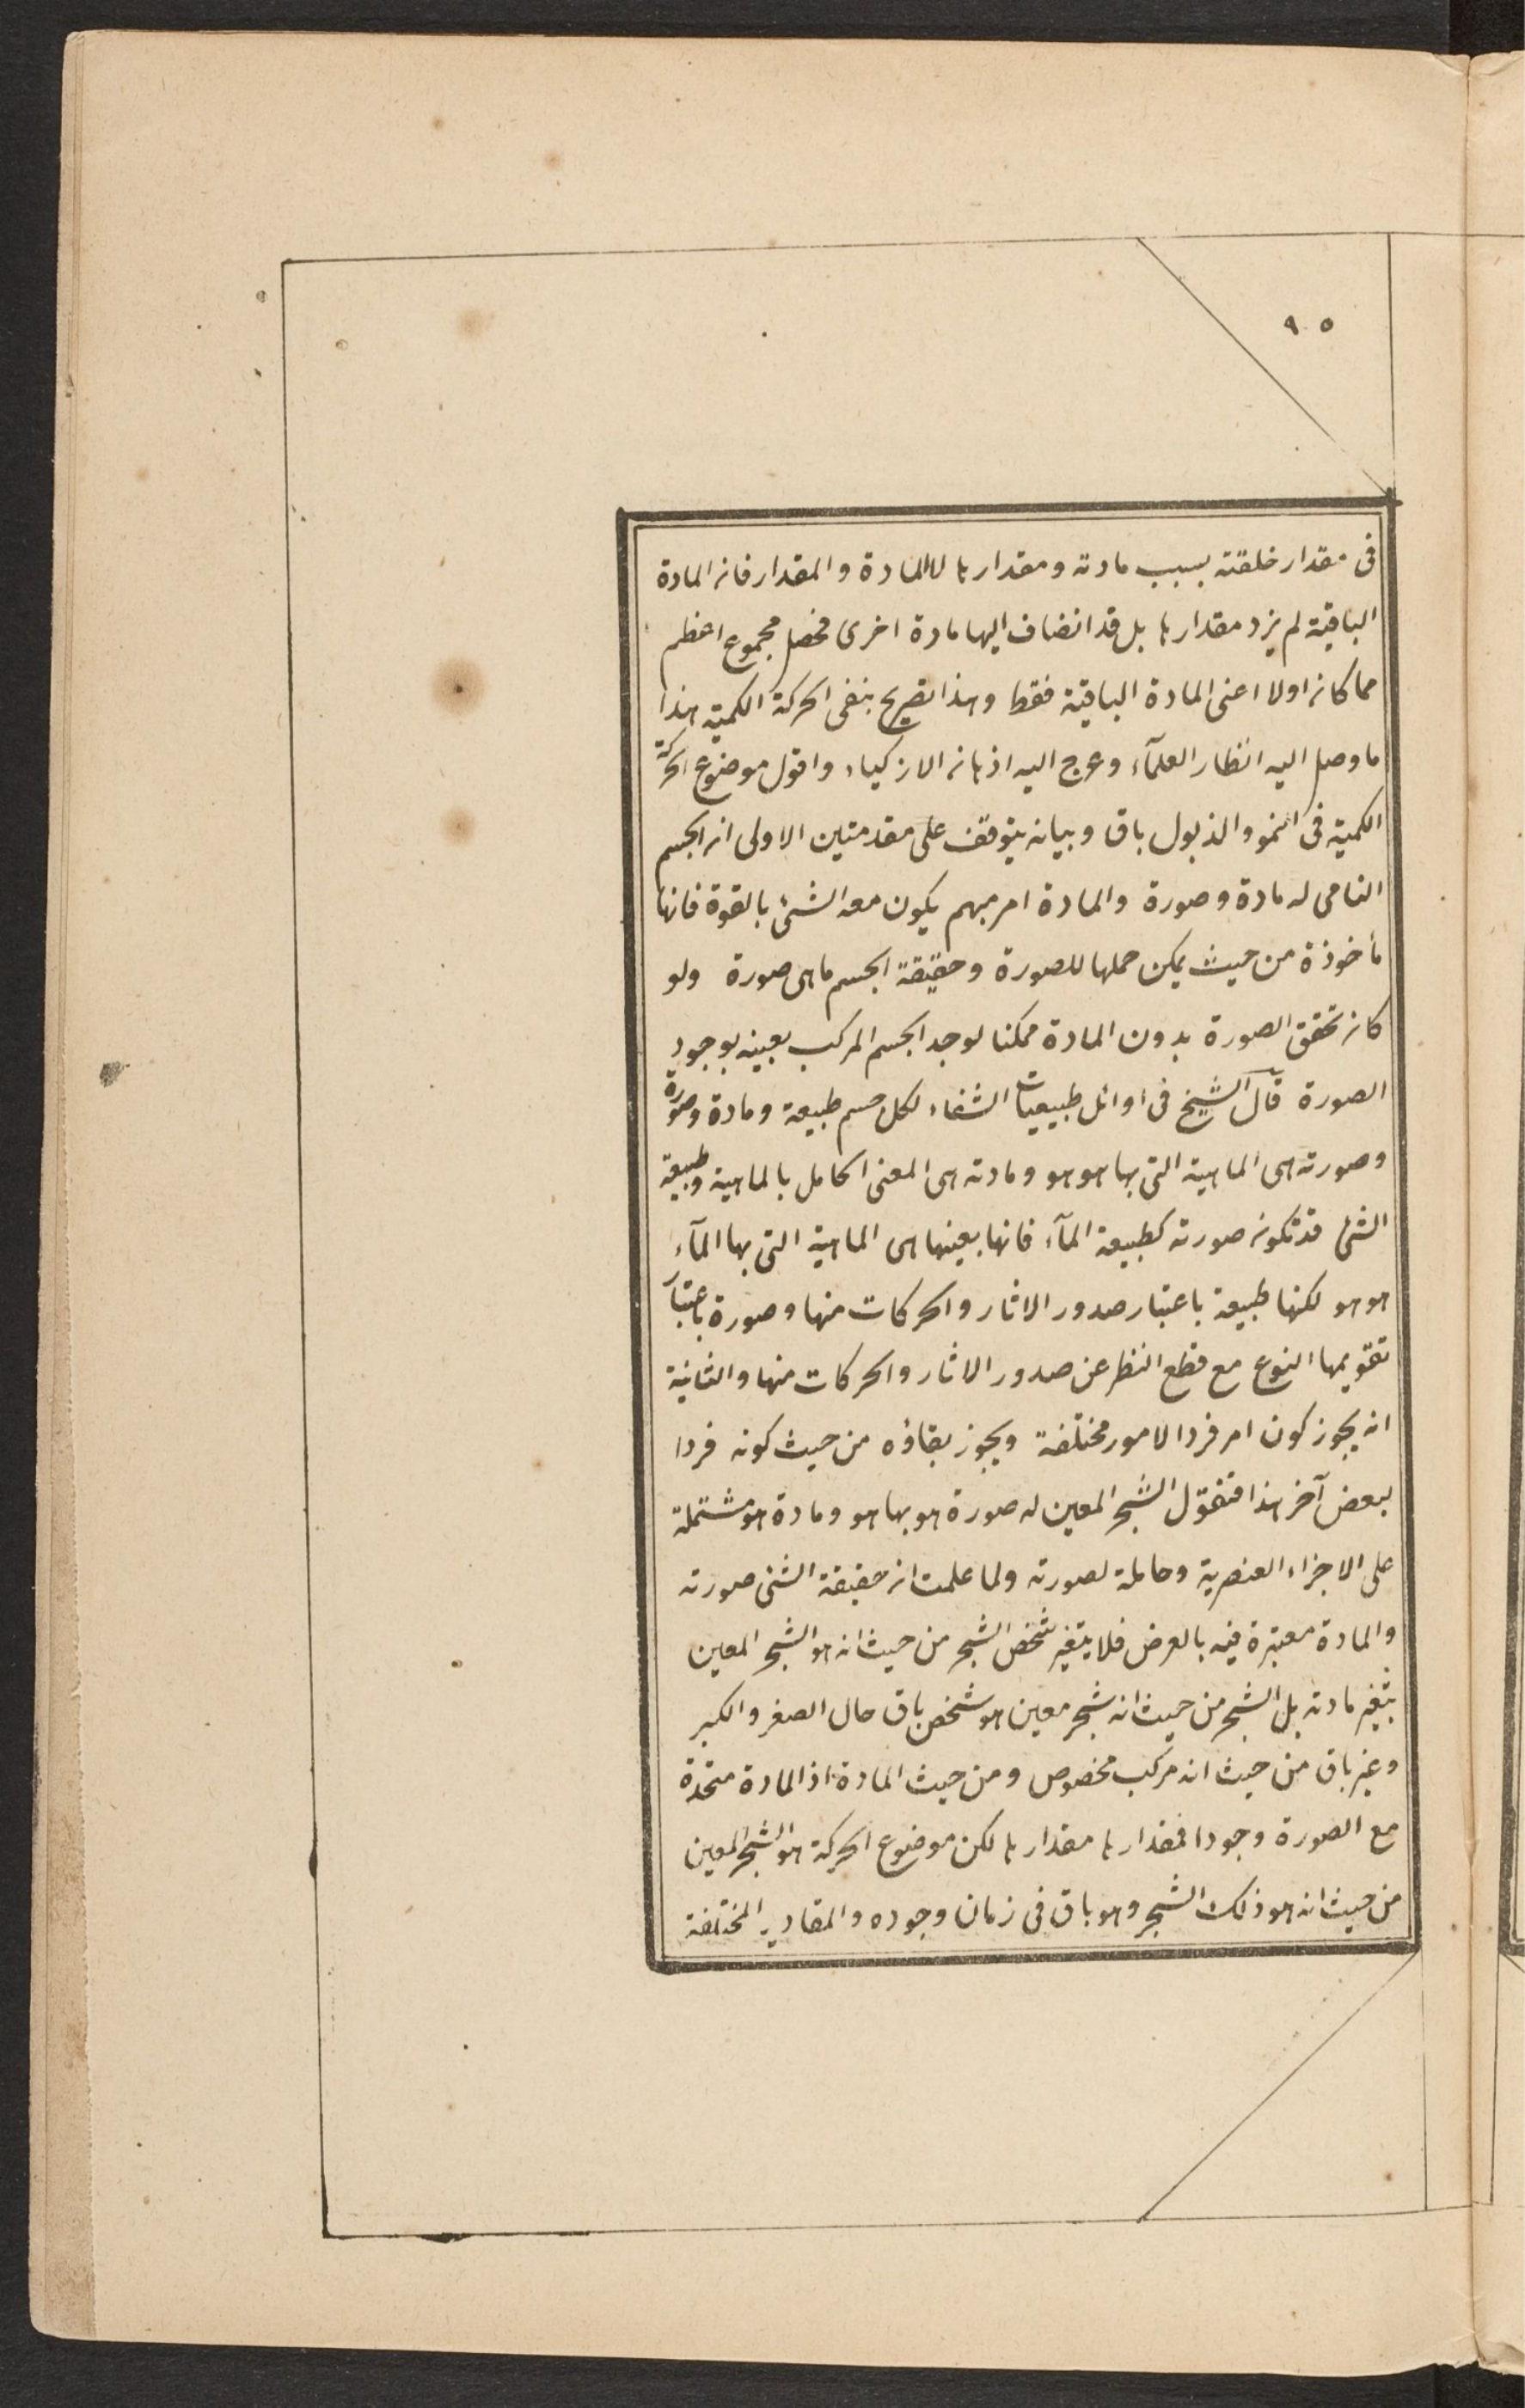 ٩٥
فى مقدار خلقته بسبب مادته ومقدارها لا المادة والمقدار فان المادة
الباقية لم يزد مقدارها بل قد انضاف اليها مادة اخرى فحصل مجموع اعظم
مما كان اولا اعنى المادة الباقية فقط وهذا تصريح بنفى الحركة الكمية هذا
ما وصل اليه انظار العلمآء وعرج اليه اذهان الازكياء واقول موضوع الحركة
الكمية فى النمو والذبول باق وبيانه يتوقف على مقدمتين الاولى ان الجسم
النامى له مادة وصورة والمادة امر مبهم يكون معه الشئ بالقوة فانها
مأخوذة من حيث يمكن حملها للصورة وحقيقة الجسم ما هى صورة ولو
كان تحقق الصورة بدون المادة ممكنا لوجد الجسم المركب بعينه بوجود
الصورة قال الشيخ فى اوائل طبيعيات الشفاء لكل جسم طبيعة ومادة وصورة
وصورته هى الماهية التى بها هو هو ومادته هى المعنى الحامل بالماهية وطبيعة
الشئ قد تكون صورته كطبيعة المآء فانها بعينها هى الماهية التى بها المآء
هو هو لكنها طبيعة باعتبار صدور الاثار والحركات منها وصورة باعتبار
تقويمها النوع مع قطع النظر عن صدور الاثار والحركات منها والثانية
انه يجوز كون امر فردا لامور مختلفة ويجوز بقاؤه من حيث كونه فردا
لبعض آخر هذا فنقول الشجر المعين له صورة هو بها هو ومادة هو مشتملة
على الاجزاء العنصرية وحاملة لصورته ولما علمت ان حقيقة الشئ صورته
والمادة معتبرة فيه بالعرض فلا يتغير شخص الشجر من حيث انه هو الشجر المعين
بتغير مادته بل الشجر من حيث انه شجر معين هو شخص باق حال الصغر والكبر
وغير باق من حيث انه مركب مخصوص ومن حيث المادة اذ المادة متحدة
مع الصورة وجودا فمقدارها مقدارها لكن موضوع الحركة هو الشجر المعين
من حيث انه هو ذلك الشجر وهو باق فى زمان وجوده والمقادير المختلفة